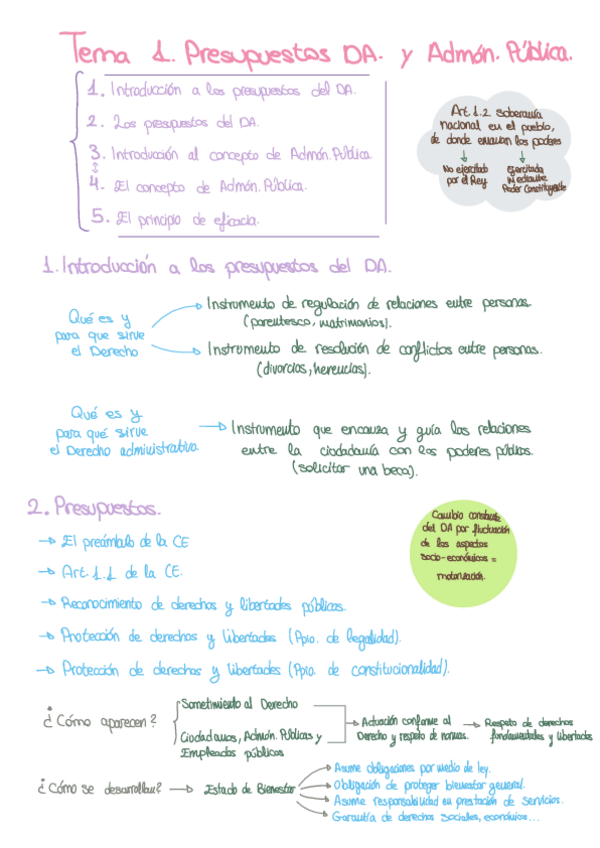 Tema 1. Presupuestos DA. y Admón. Pública.
1. Introducción a los presupuestos del DA.
2. Los presupuestos del DA.
3. Introducción al concepto de Admón. Pública
4. El concepto de Admón. Pública.
5. El principio de eficacia.
Art. 1.2 Soberanía
nacional en el pueblo,
de donde emanan los poderes
No ejercitado
por el Rey
Ejercitada
mediante
Poder Constituyente
1. Introducción a los presupuestos del DA.
Qué es y
para que sirve
el Derecho
Instrumento de regulación de relaciones entre personas
(parentesco, matrimonios).
Instrumento de resolución de conflictos entre personas.
(divorcios, herencias).
Qué es y
para qué sirve
el Derecho administrativo
Instrumento que encauza y guía las relaciones
entre la ciudadanía con los poderes públicos.
(solicitar una beca).
2. Presupuestos.
El preámbulo de la CE
Art. 1.1 de la CE.
Reconocimiento de derechos y libertades públicas.
Protección de derechos y libertades (Ppio. de legalidad).
Protección de derechos y libertades (Ppio. de constitucionalidad).
Cambio constante
del DA por fluctuación
de los aspectos
socio-económicos =
motorización.
¿Cómo aparecen?
Sometimiento al Derecho
Ciudadanos, Admón. Públicas y
Empleados públicos
Actuación conforme al
Derecho y respeto de normas.
Respeto de derechos
fundamentales y libertades
¿Cómo se desarrollan?
Estado de Bienestar
Asume obligaciones por medio de ley.
Obligación de proteger bienestar general.
Asume responsabilidad en prestación de servicios.
Garantía de derechos sociales, económicos...